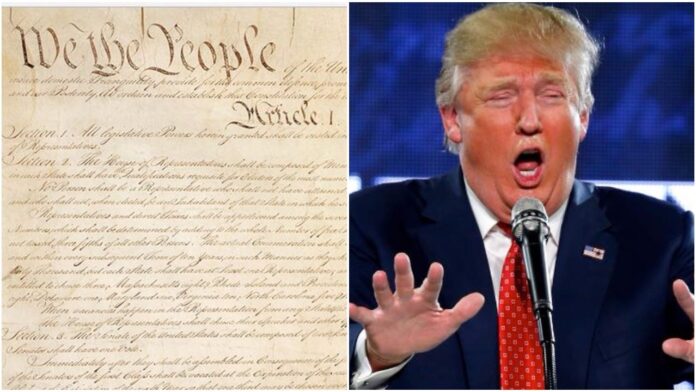 We the People of the
insure domestic Tranquility, provide for the common defence,
and our Posterity, do ordain and establish this Constitution for
Article. I.
Section. 1. All legislative Powers herein granted shall be
of Representatives.
Section. 2. The House of Representatives shall be composed of
in each State shall have Qualifications requisite for Electors of the most
No Person shall be a Representative who shall not have attained
and who shall not, when elected, be an Inhabitant of that State in which
Representatives and direct Taxes shall be apportioned among the several
Numbers, which shall be determined by adding to the whole Number of free
not taxed, three fifths of all other Persons. The actual Enumeration shall
and within every subsequent Term of ten Years, in such Manner as they
thirty Thousand, but each State shall have at Least one Representative;
entitled to chuse three, Massachusetts eight, Rhode Island and
eight, Delaware one, Maryland six, Virginia ten, North Carolina five,
When vacancies happen in the Representation from any State,
The House of Representatives shall chuse their Speaker and
Section. 3. The Senate of the United States shall be composed of
Senator shall have one Vote.
Immediately after they shall be assembled in Consequence of the
of the Senators of the first Class shall be vacated at the Expiration of the